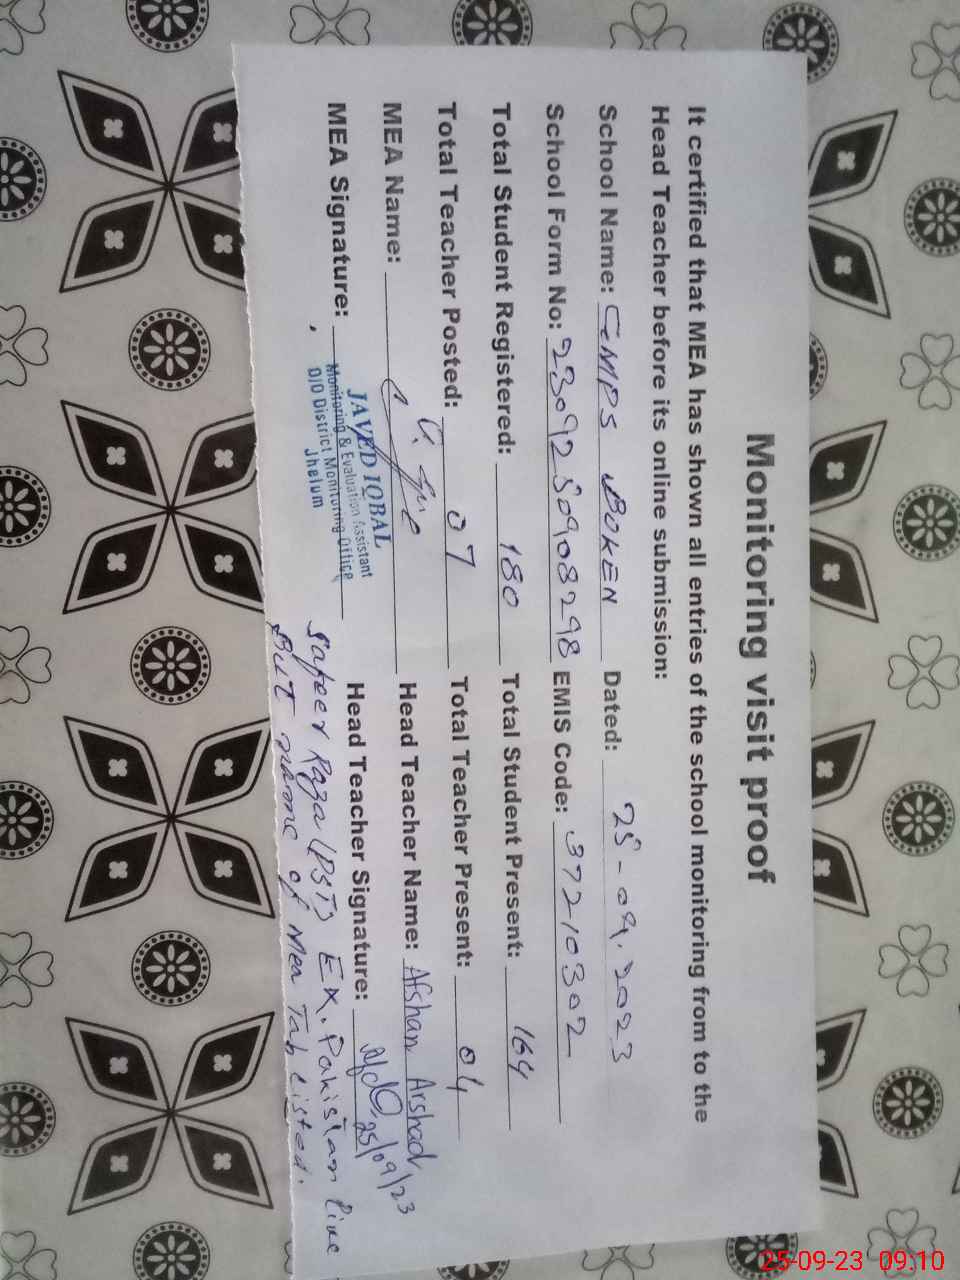 Monitoring visit proof
It certified that MEA has shown all entries of the school monitoring from to the
Head Teacher before its online submission:
School Name: GMPS BOKEN Dated: 25-09.2023
School Form No: 2309250908298 EMIS Code: 37210302
Total Student Registered: 180 Total Student Present: 164
Total Teacher Posted: 07 Total Teacher Present: 04
MEA Name: Head Teacher Name: Afshan Arshad
MEA Signature: Head Teacher Signature: 25/09/23
JAVED IQBAL
Monitoring & Evaluation Assistant
O/O District Monitoring Office
Jhelum
Safeer Raza (PST) Ex. Pakistan live
But name of Mea Tab listed.
25-09-23 09:10